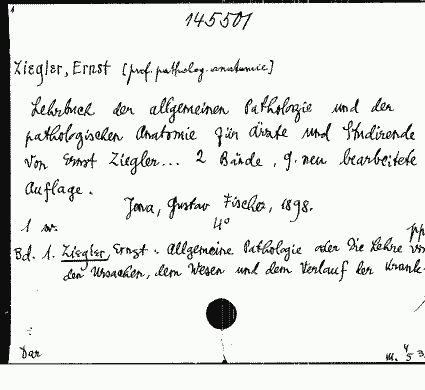 145501
Ziegler, Ernst [prof. patholog. anatomie]
Lehrbuch der allgemeinen Pathologie und der
pathologischen Anatomie für Ärzte und Studirende
von Ernst Ziegler... 2 Bände, 9. neu bearbeitete
Auflage.
Jena, Gustav Fischer, 1898.
4°
1 w.
Bd. 1. Ziegler, Ernst. Allgemeine Pathologie oder Die Lehre von
den Ursachen, dem Wesen und dem Verlauf der Krank-
Dar